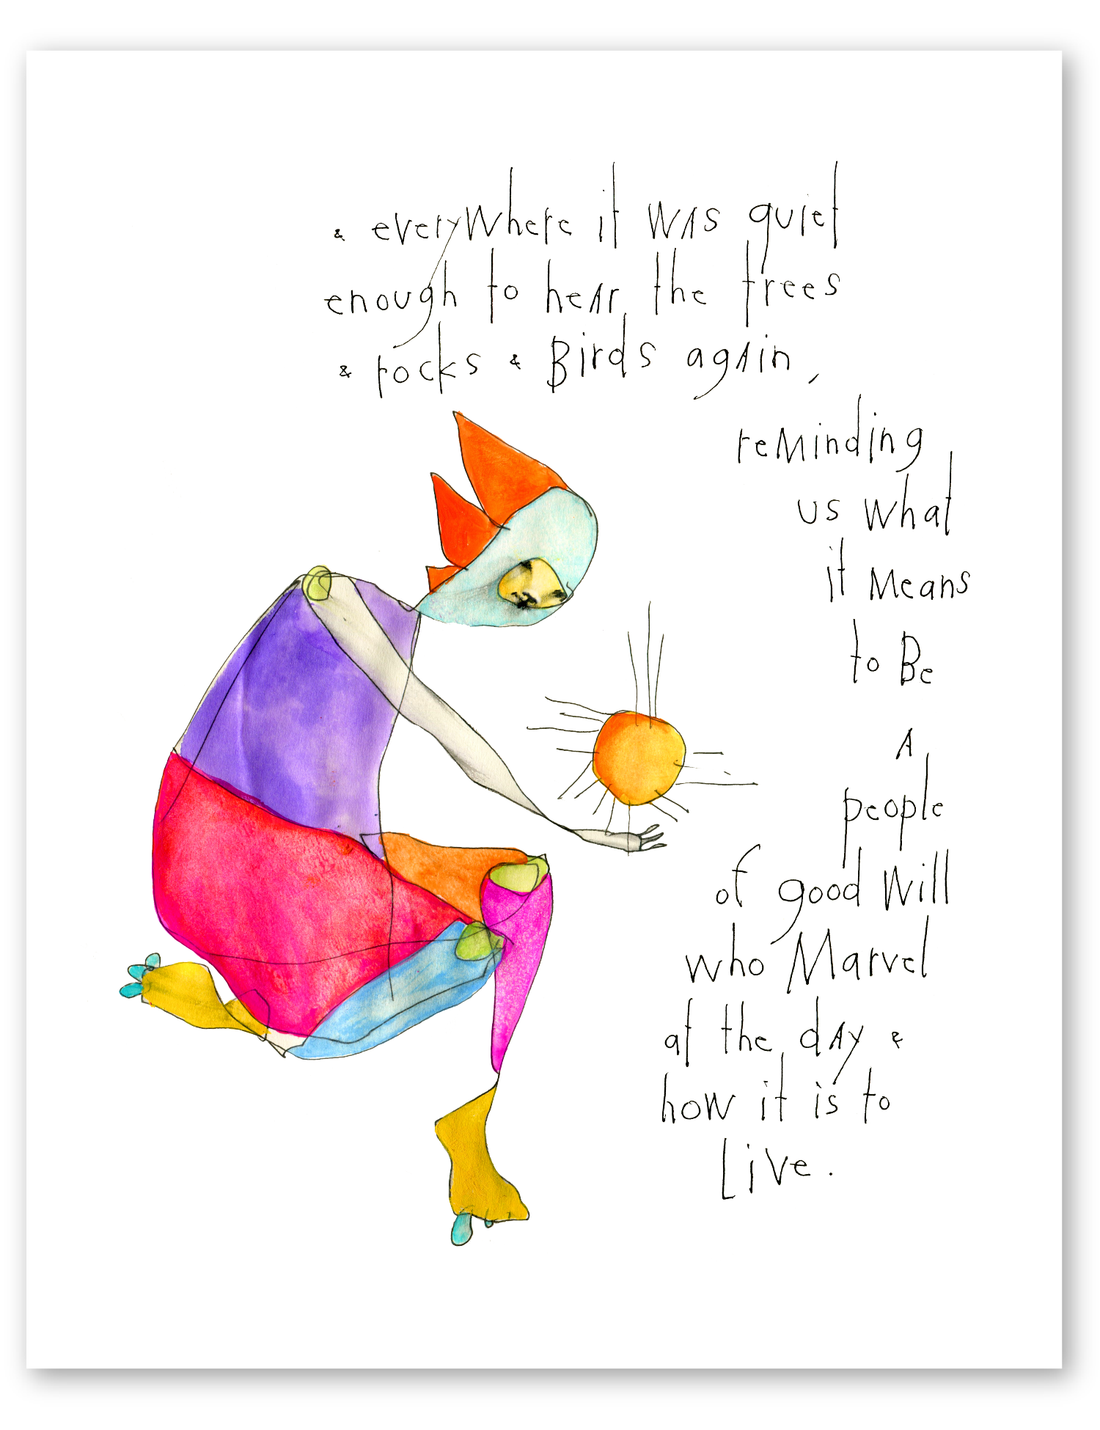 & everywhere it was quiet
enough to hear the trees
& rocks & Birds again,
reminding
us what
it Means
to Be
A
people
of good Will
who Marvel
at the day &
how it is to
Live.